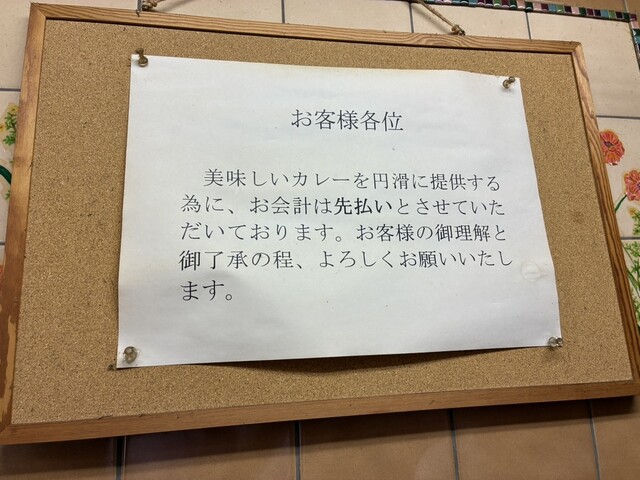 お客様各位
美味しいカレーを円滑に提供する
為に、お会計は先払いとさせていた
だいております。お客様の御理解と
御了承の程、よろしくお願いいたし
ます。